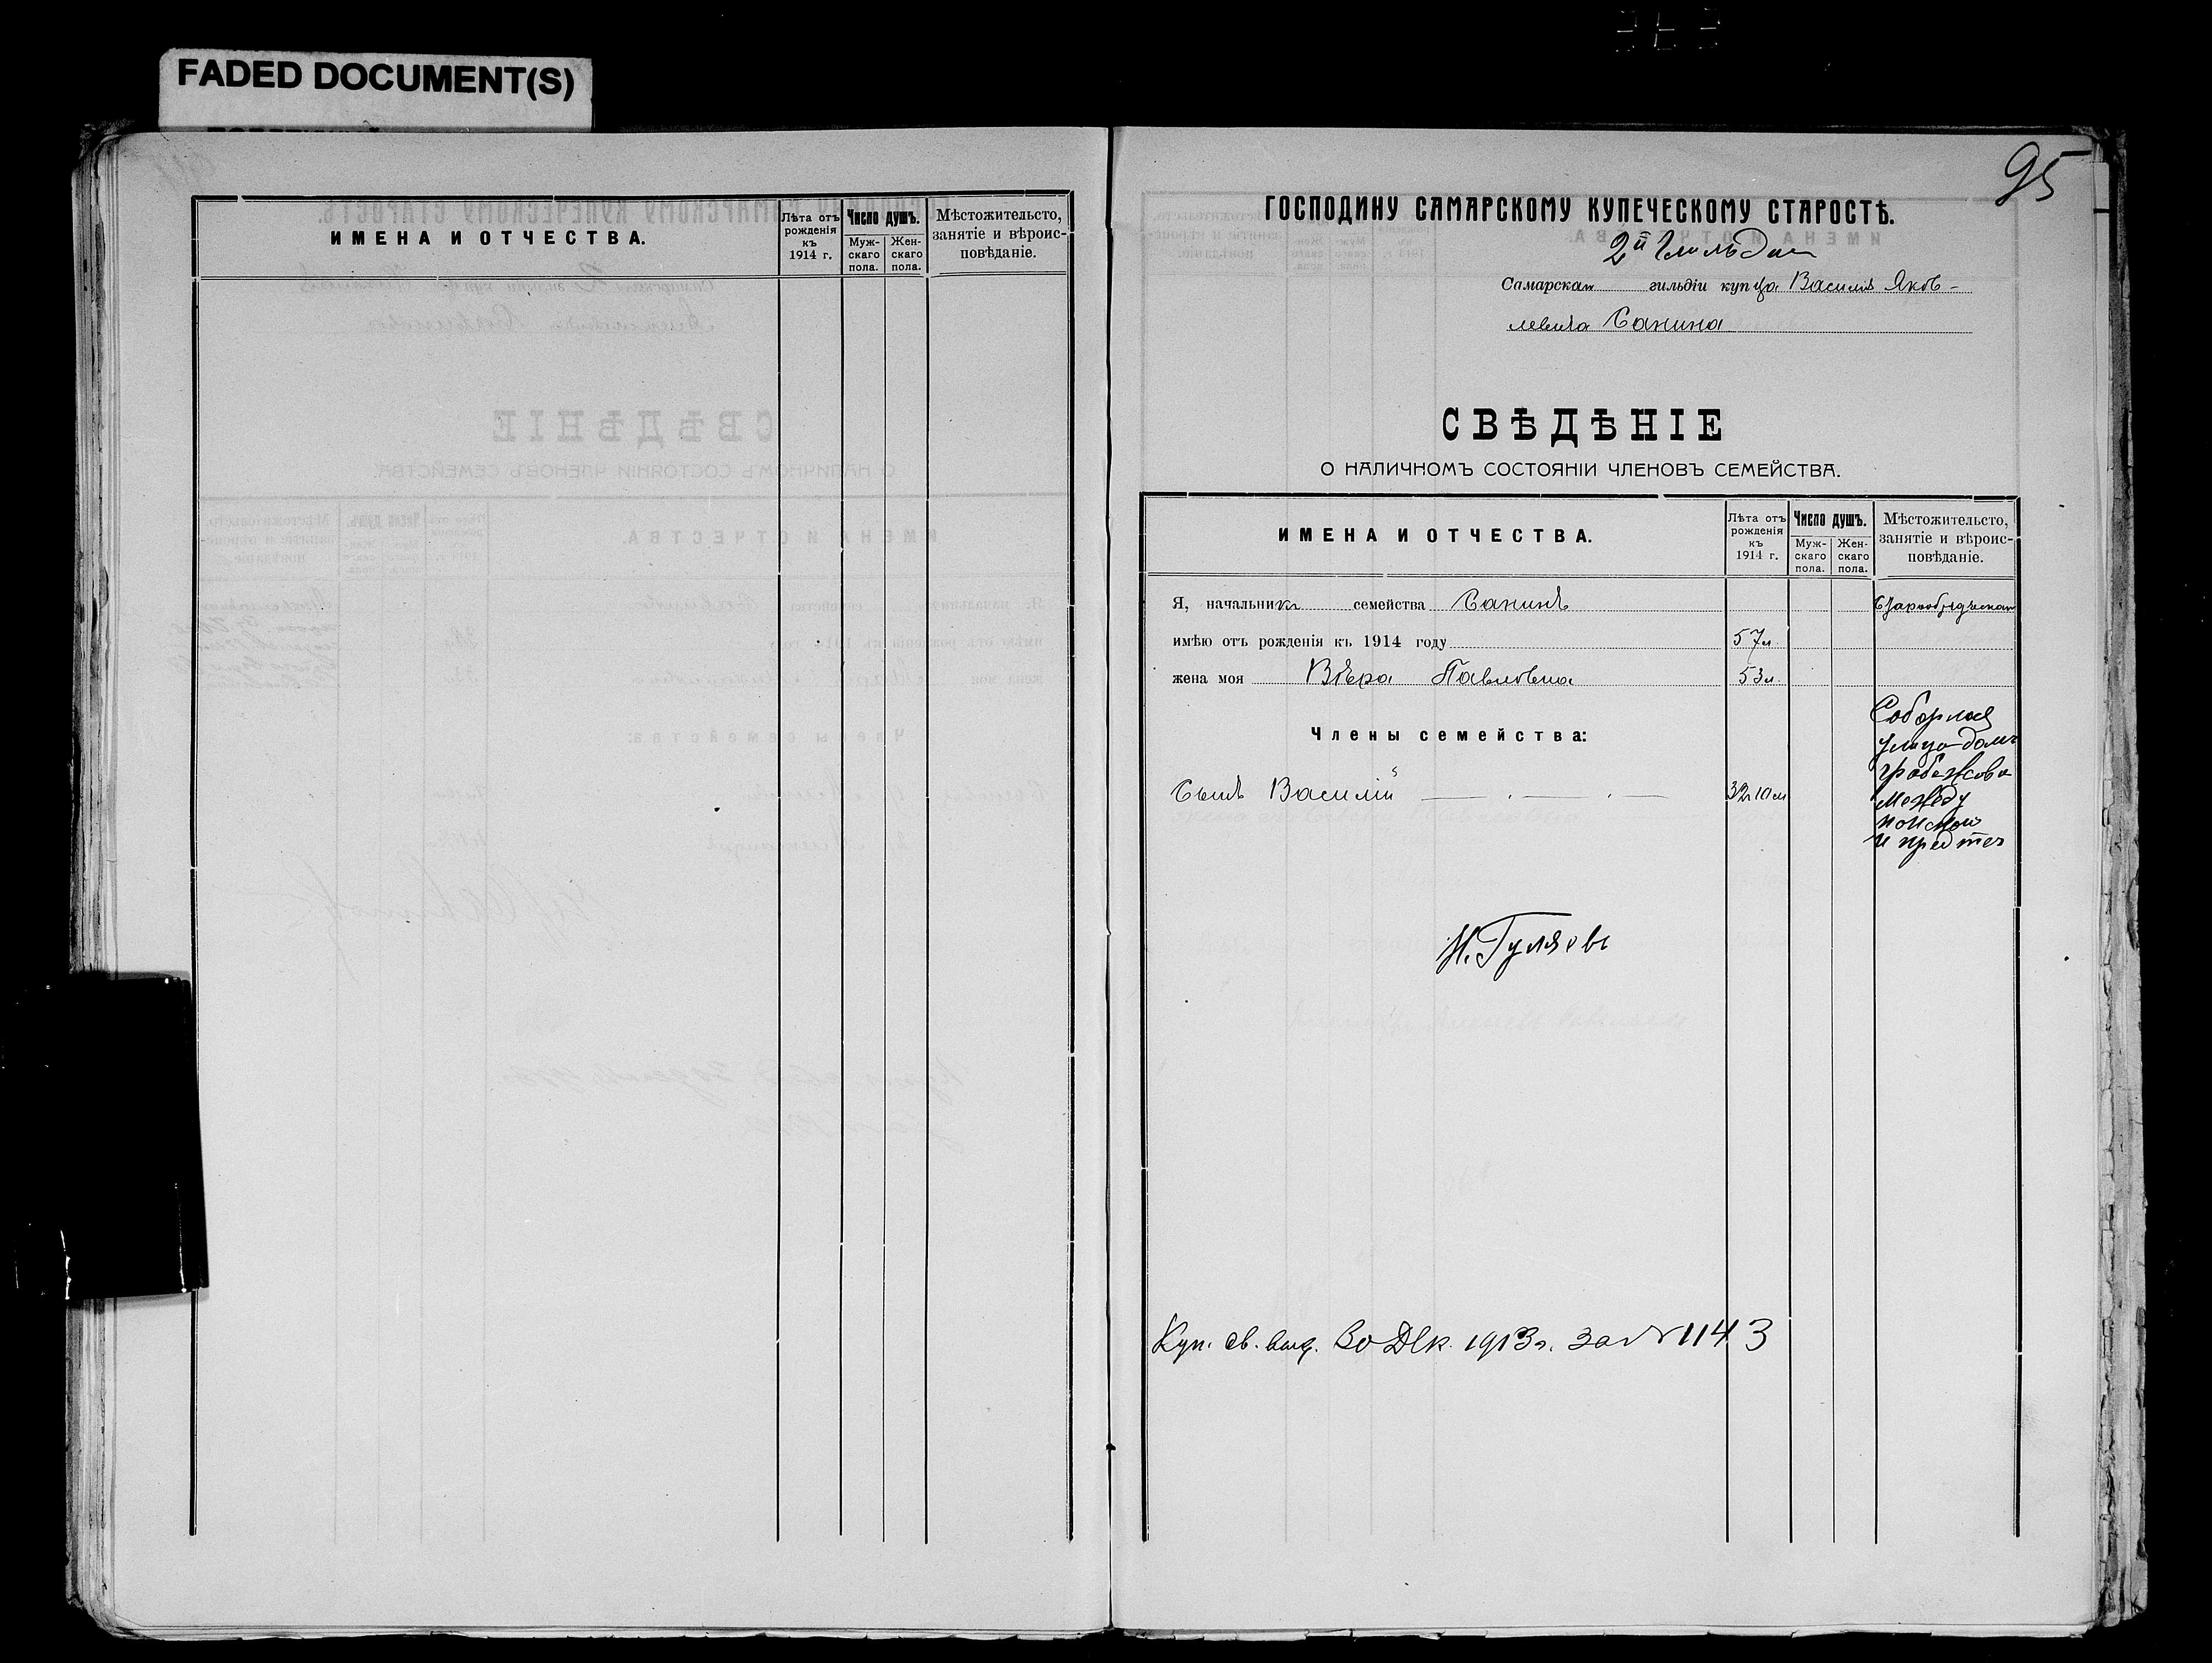 FADED DOCUMENT(S)
ИМЕНА И ОТЧЕСТВА.
Лѣта отъ рожденія къ 1914 г.
Число душъ.
Мужскаго пола.
Женскаго пола.
Мѣстожительсто, занятіе и вѣроисповѣданіе.
95
ГОСПОДИНУ САМАРСКОМУ КУПЕЧЕСКОМУ СТАРОСТѢ.
2й Гильдии
Самарскаго гильдіи купца Василія Яков-
левича Санина
СВѢДѢНІЕ
О НАЛИЧНОМЪ СОСТОЯНІИ ЧЛЕНОВЪ СЕМЕЙСТВА.
ИМЕНА И ОТЧЕСТВА.
Лѣта отъ рожденія къ 1914 г.
Число душъ.
Мужскаго пола.
Женскаго пола.
Мѣстожительсто, занятіе и вѣроисповѣданіе.
Я, начальникъ семейства Санинъ
Старообрядческая
имѣю отъ рожденія къ 1914 году 57 л
жена моя Вѣра Павловна 53 л.
Члены семейства:
Соборная
улица домъ
между
и предтеч
Сынъ Василій 32 10 м
Н. Гуляевъ
Куп. св. выд. 30 Дек. 1913 г. за № 1143